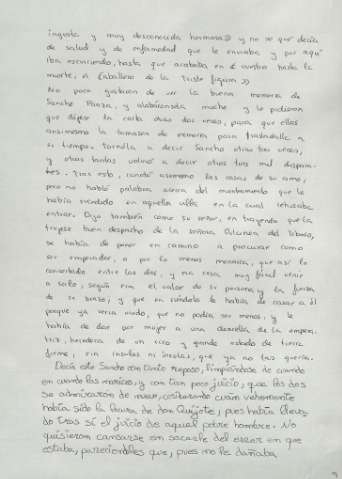 ingrata y muy desconocida hermosa» y no se qué decía
de salud y de enfermedad que le enviaba y por aquí
iba escurriendo, hasta que acababa en « vuestro hasta la
muerte, el Caballero de la Triste figura »
No poco gustaron de ver la buena memoria de
Sancho Panza, y alabáronsela mucho y le pidieron
que dijese la carta otras dos veces, para que ellos
ansimesmo la tomasen de memoria para trasladalla a
su tiempo. Tornóla a decir Sancho otras tres veces,
y otras tantas volvió a decir otros tres mil dispara-
tes. Tras esto, contó asimesmo las cosas de su amo,
pero no habló palabra acerca del manteamiento que le
había sucedido en aquella venta en la cual rehusaba
entrar. Dijo también como su señor, en trayendo que le
trajese buen despacho de la señora Dulcinea del Toboso,
se había de poner en camino a procurar como
ser emperador, o por lo menos monarca, que así lo
concertado entre los dos, y era cosa muy fácil venir
a serlo, según era el valor de su persona y la fuerza
de su brazo, y que en siéndolo le había de casar a él
porque ya sería viudo, que no podía ser menos, y le
había de dar por mujer a una doncella de la empera-
triz, heredera de un rico y grande estado de tierra
firme, sin insulas ni insulos, que ya no las quería.
Decía esto Sancho con tanto reposo, limpiándose de cuando
en cuando las narices, y con tan poco juicio, que los dos
se admiraron de nuevo, considerando cuán vehemente
había sido la locura de don Quijote, pues había lleva-
do tras sí el juicio de aquel pobre hombre. No
quisieron cansarse en sacarle del error en que
estaba, pareciéndoles que, pues no le dañaba